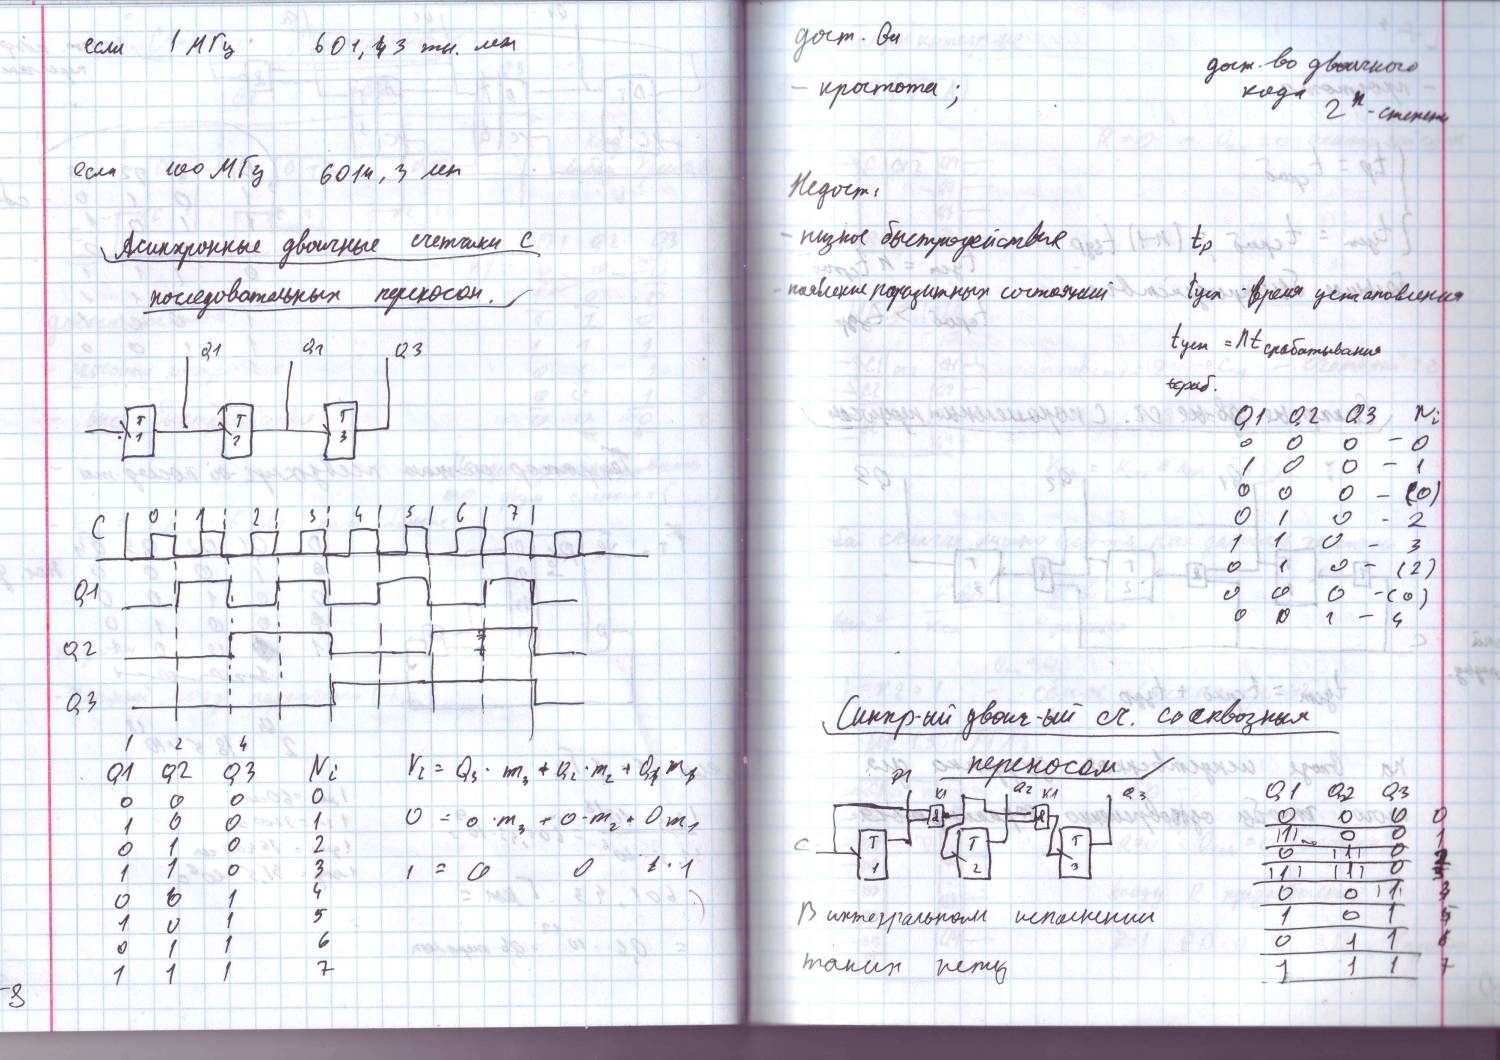 если 1 МГц 601,43 тыс. лет
если 100 МГц 6014,3 лет
Асинхронные двоичные счетчики с
последовательным переносом.
Q1 Q1 Q3
T T T
1 2 3
C 0 1 2 3 4 5 6 7
Q1
Q2
Q3
1 2 4
Q1 Q2 Q3 Ni
0 0 0 0
1 0 0 1
0 1 0 2
1 1 0 3
0 0 1 4
1 0 1 5
0 1 1 6
1 1 1 7
0 = 0·m3 + 0·m2 + 0m1
1 = 0 0 1·1
8
дост. ва
- простота ;
дост-во двоичного
кода
2^n - степень
Недост.
- низкое быстродействие tр
- появление паразитных состояний tуст - время установления
tуст = nt срабатывания
tсраб.
Q1 Q2 Q3 Ni
0 0 0 - 0
1 0 0 - 1
0 0 0 - (0)
0 1 0 - 2
1 1 0 - 3
0 1 0 - (2)
0 0 0 - (0)
0 0 1 - 4
Синхр-ый двоич-ый сч. со сквозным
переносом
Q2 Q3
C T T T
1 2 3
Q1 Q2 Q3
0 0 0 0
1 0 0 1
0 1 0 2
1 1 0 3
0 0 1 4
1 0 1 5
0 1 1 6
1 1 1 7
В интегральном исполнении
таких нету